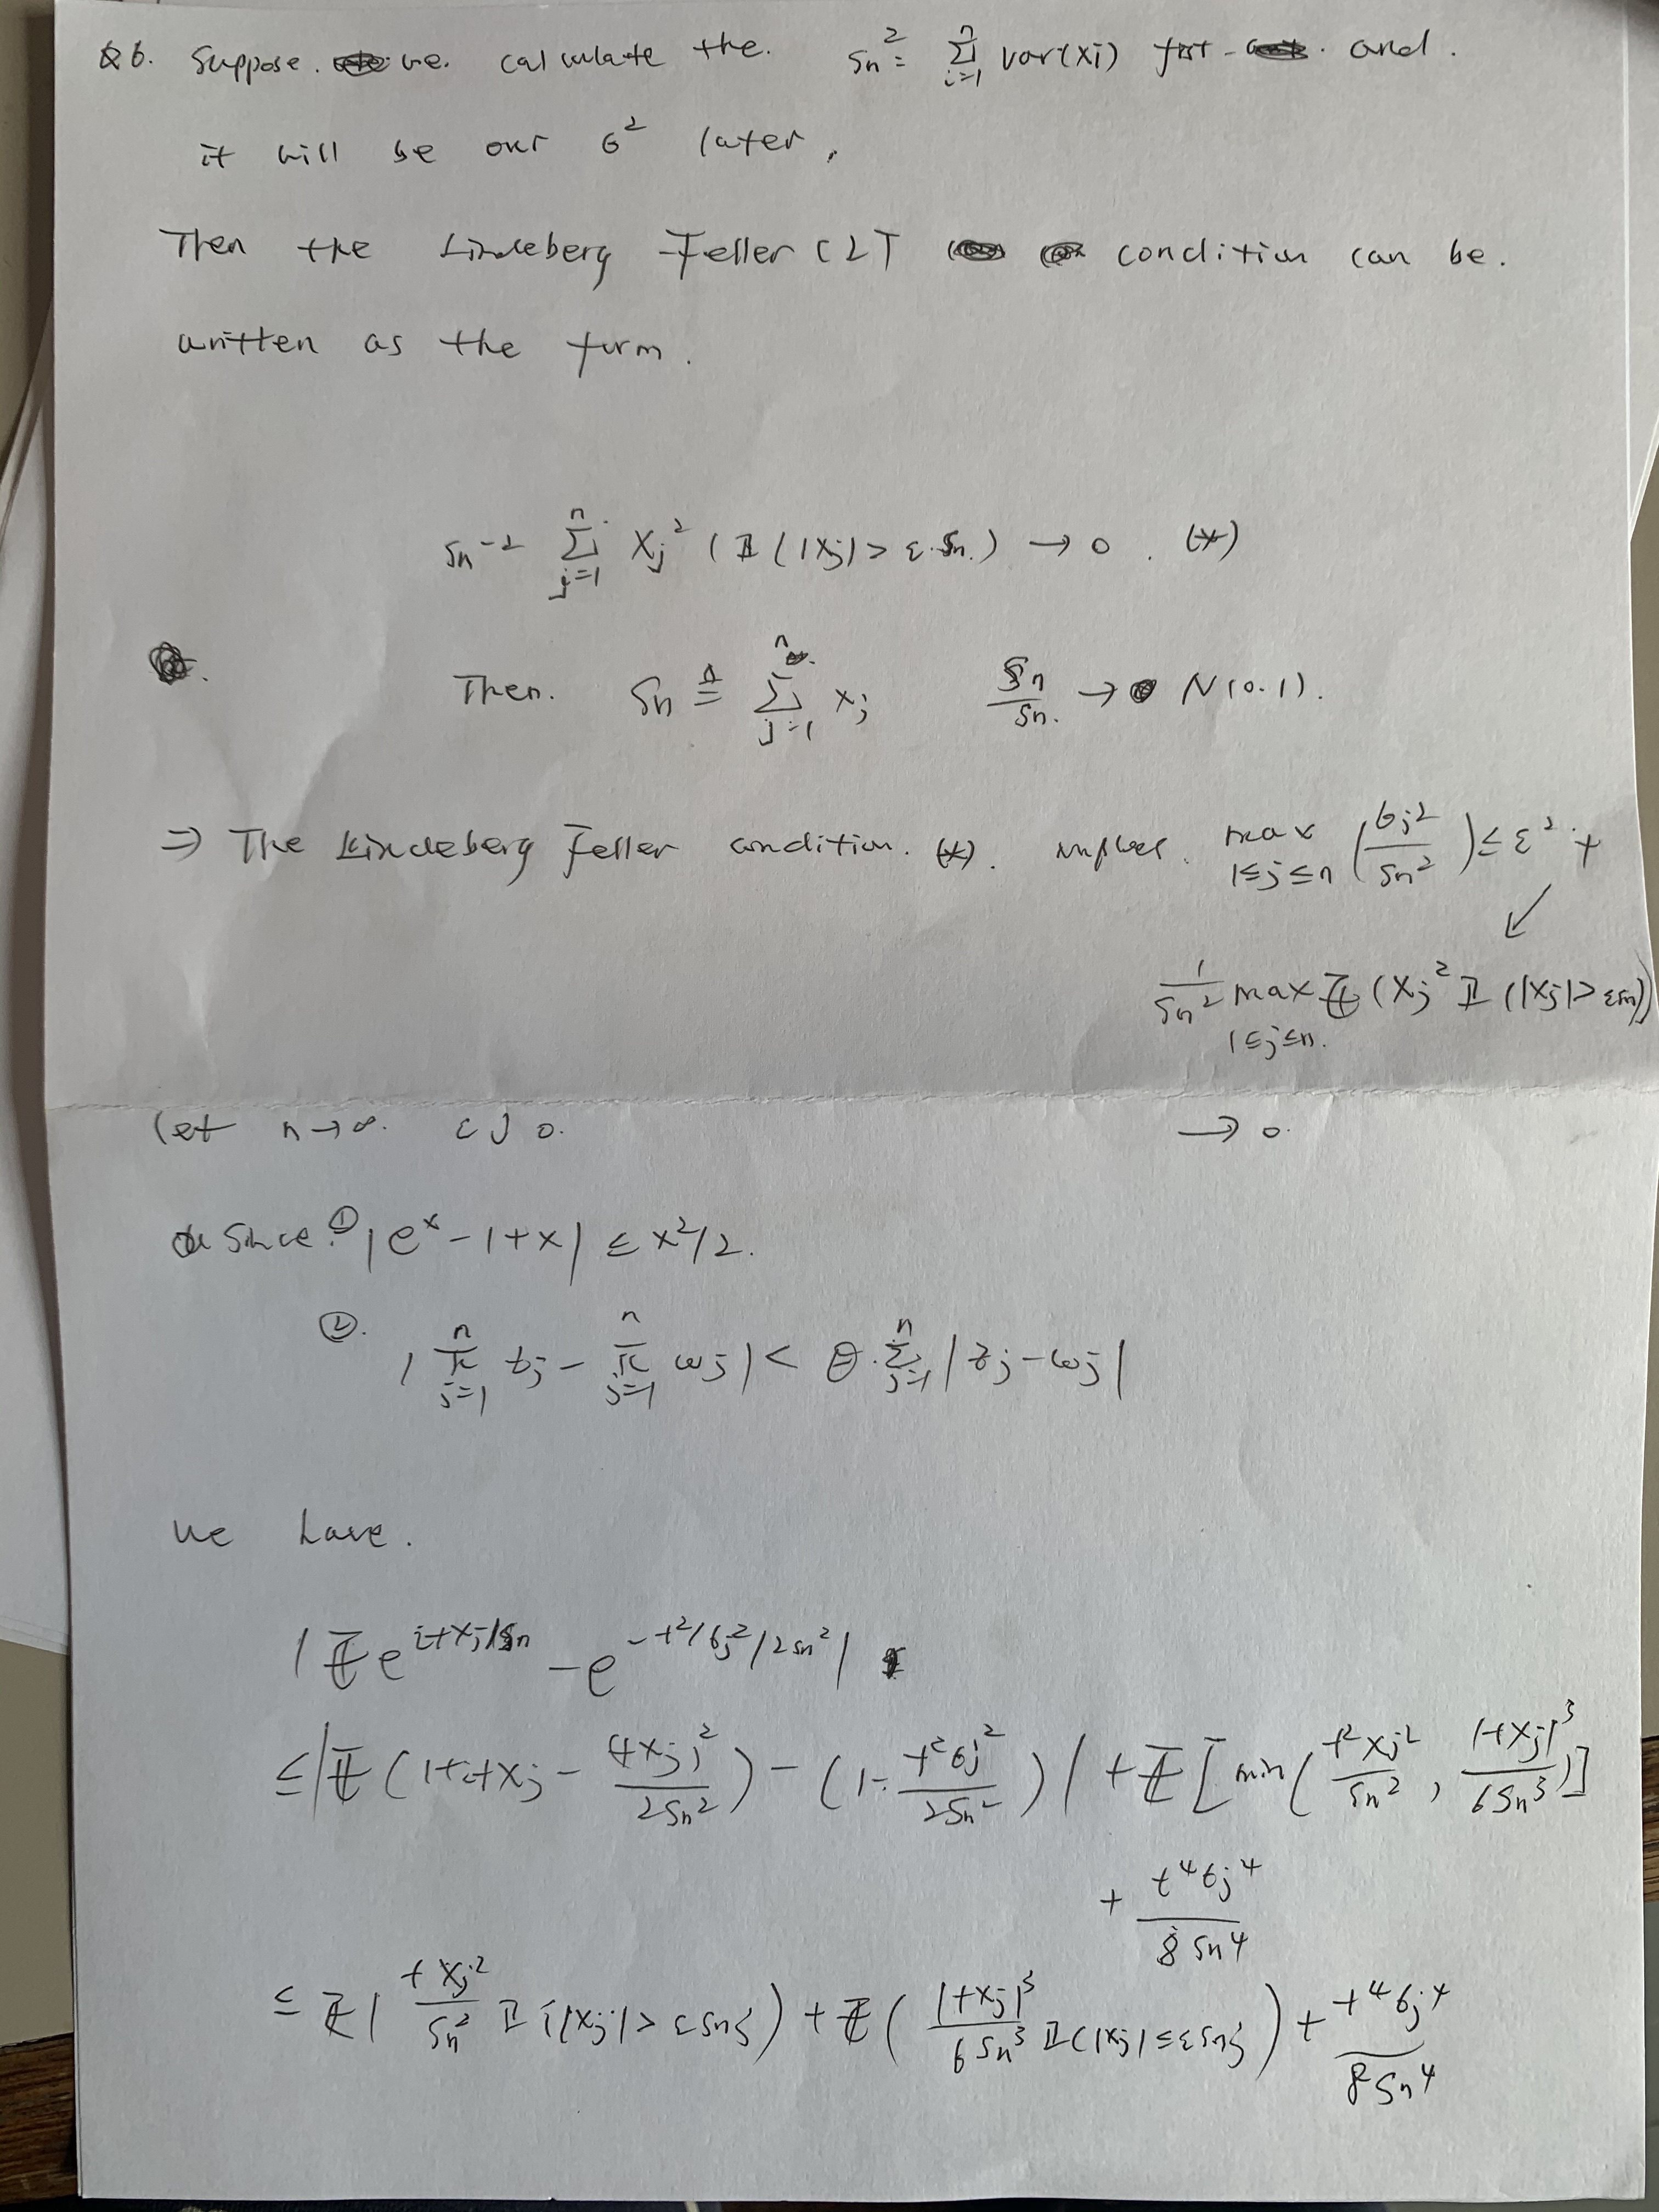 Q6. Suppose. we. calculate the. Sn² = Σ_{i=1}^{n} Var(Xi) first. and.
it will be our σ² later.
Then the Lindeberg-Feller CLT condition can be.
written as the form.
Sn⁻² Σ_{j=1}^{n} Xj² (𝟙(|Xj| > ε·Sn.) → 0. (*)
Then. Sn ≜ Σ_{j=1}^{n} Xj Sn/Sn. → N(0.1).
⇒ The Lindeberg Feller condition. (*). implies. max_{1≤j≤n} (σj²/Sn²) ≤ ε² +
↙
1/Sn² max_{1≤j≤n.} E(Xj² 𝟙(|Xj| > εSn))
Let n→∞. ε↓0. → 0.
Since. ① |e^x - 1 + x| ≤ x²/2.
②. |π_{j=1}^{n} zj - π_{j=1}^{n} ωj| < θ·Σ_{j=1}^{n} |zj - ωj|
We have.
|E e^{itXj/Sn} - e^{-t²/σj²/2Sn²}|
≤ |E(1+itXj - (tXj)²/2Sn²) - (1 - t²σj²/2Sn²)| + E[min(t²Xj²/Sn², |tXj|³/6Sn³)]
+ t⁴σj⁴/8Sn⁴
≤ E(tXj²/Sn² 𝟙{|Xj| > εSn}) + E(|tXj|³/6Sn³ 𝟙(|Xj| ≤ εSn}) + t⁴σj⁴/8Sn⁴